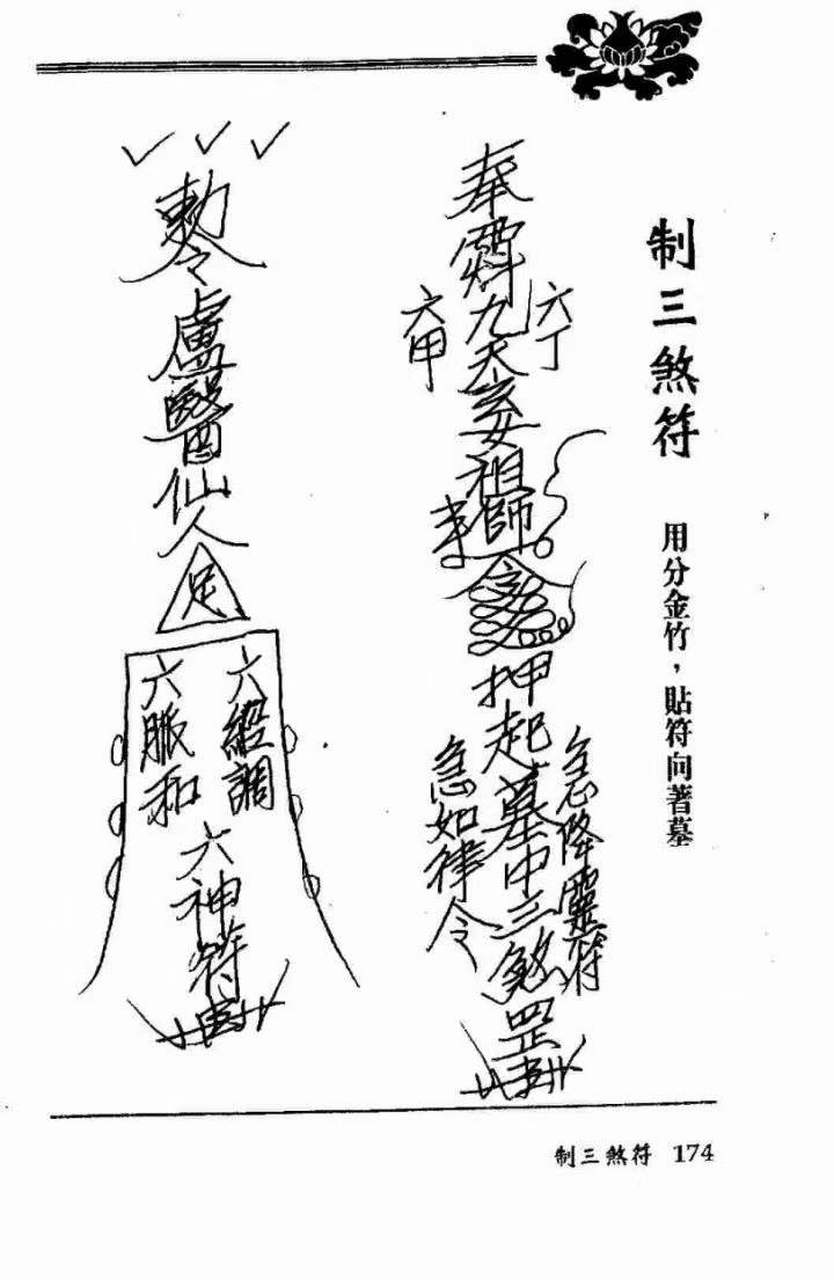 制三煞符
用分金竹，貼符向著墓
六丁
奉
九天玄女祖師
押起墓中三煞罡
六甲
急降靈符
急如律令
敕令盧醫仙人
足
六經調
六脈和
六神符
制三煞符 174